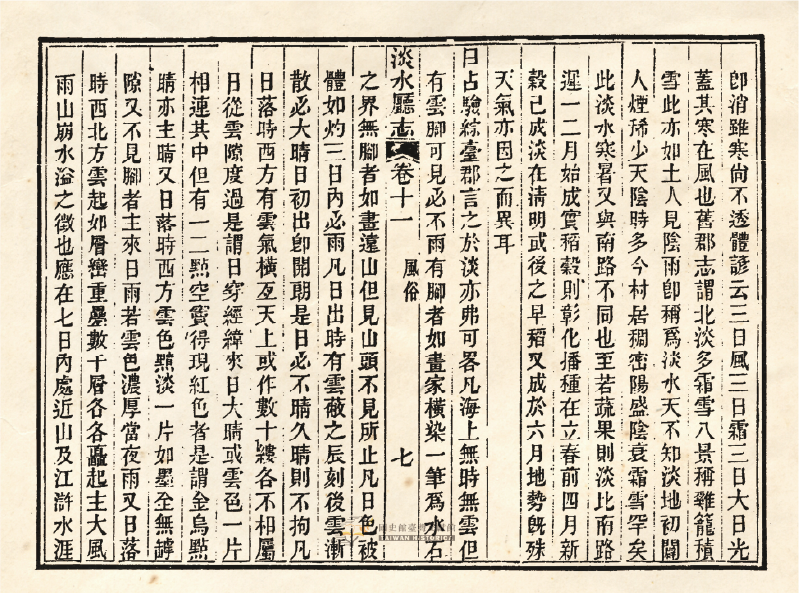 卽消雖寒尙不透體諺云三日風三日霜三日大日光
蓋其寒在風也舊郡志謂北淡多霜雪八景稱雞籠積
雪此亦如土人見陰雨卽稱爲淡水天不知淡地初闢
人煙稀少天陰時多今村居稠密陽盛陰衰霜雪罕矣
此淡水寒暑又與南路不同也至若蔬果則淡比南路
遲一二月始成實稻穀則彰化播種在立春前四月新
穀已成淡在淸明或後之早稻又成於六月地勢旣殊
天氣亦因之而異耳
日占驗綜臺郡言之於淡亦弗可畧凡海上無時無雲但
有雲腳可見必不雨有腳者如畫家橫染一筆爲水石
淡水廳志 卷十一 風俗 七
之界無腳者如畫遠山但見山頭不見所止凡日色被
體如灼三日內必雨凡日出時有雲蔽之辰刻後雲漸
散必大晴日初出卽開朗是日必不晴久晴則不拘凡
日落時西方有雲氣橫亙天上或作數十縷各不相屬
日從雲隙度過是謂日穿經緯來日大晴或雲色一片
相連其中但有一二點空竇得現紅色者是謂金烏點
睛亦主晴又日落時西方雲色黯淡一片如墨全無罅
隙又不見腳者主來日雨若雲色濃厚當夜雨又日落
時西北方雲起如層巒重疊數十層各各矗起主大風
雨山崩水溢之徵也應在七日內處近山及江滸水涯
國史館臺灣文獻館
TAIWAN HISTORICA